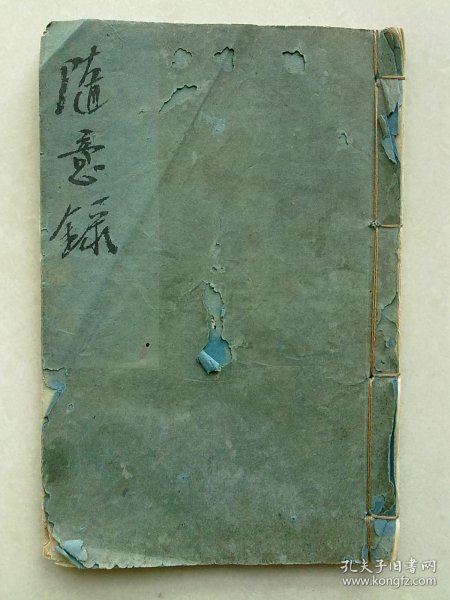 隨意錄
孔夫子旧书网
www.kongfz.com